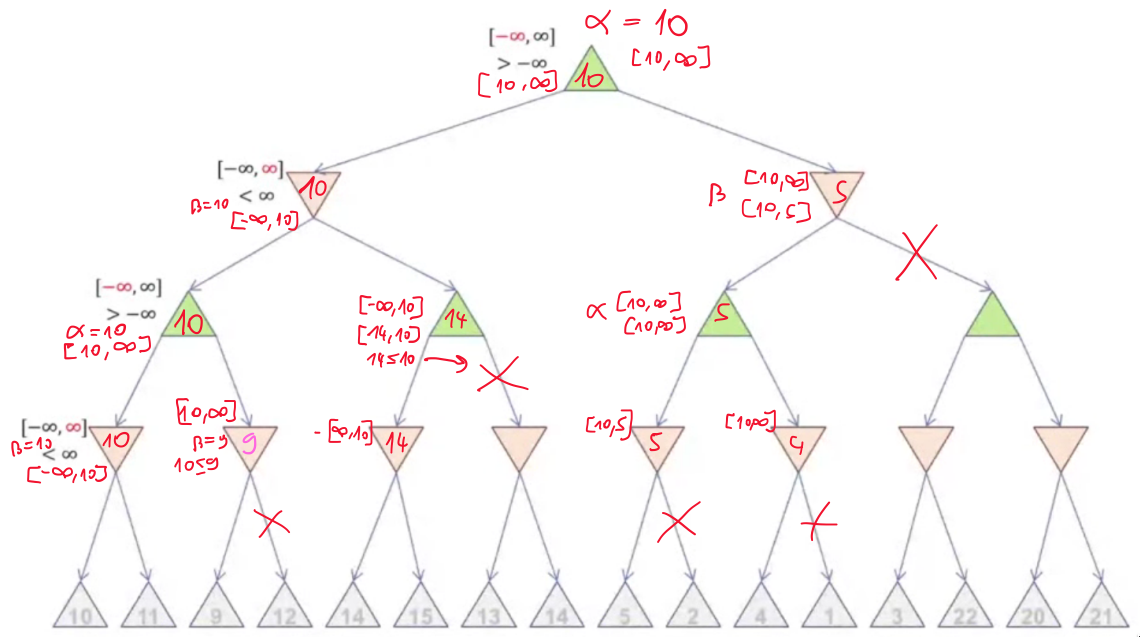 [-∞, ∞]
α = 10
> -∞
[10, ∞]
[10, ∞]
10
[-∞, ∞]
< ∞
β=10
[-∞, 10]
10
β
[10, ∞]
[10, 5]
5
[-∞, ∞]
> -∞
α=10
[10, ∞]
10
[-∞, 10]
[14, 10]
14≤10
14
α
[10, ∞]
[10, ∞]
5
[-∞, ∞]
β=10
< ∞
[-∞, 10]
10
[10, ∞]
β=9
10≤9
9
-[∞, 10]
14
[10, 5]
5
[10,∞]
4
10 11 9 12 14 15 13 14 5 2 4 1 3 22 20 21